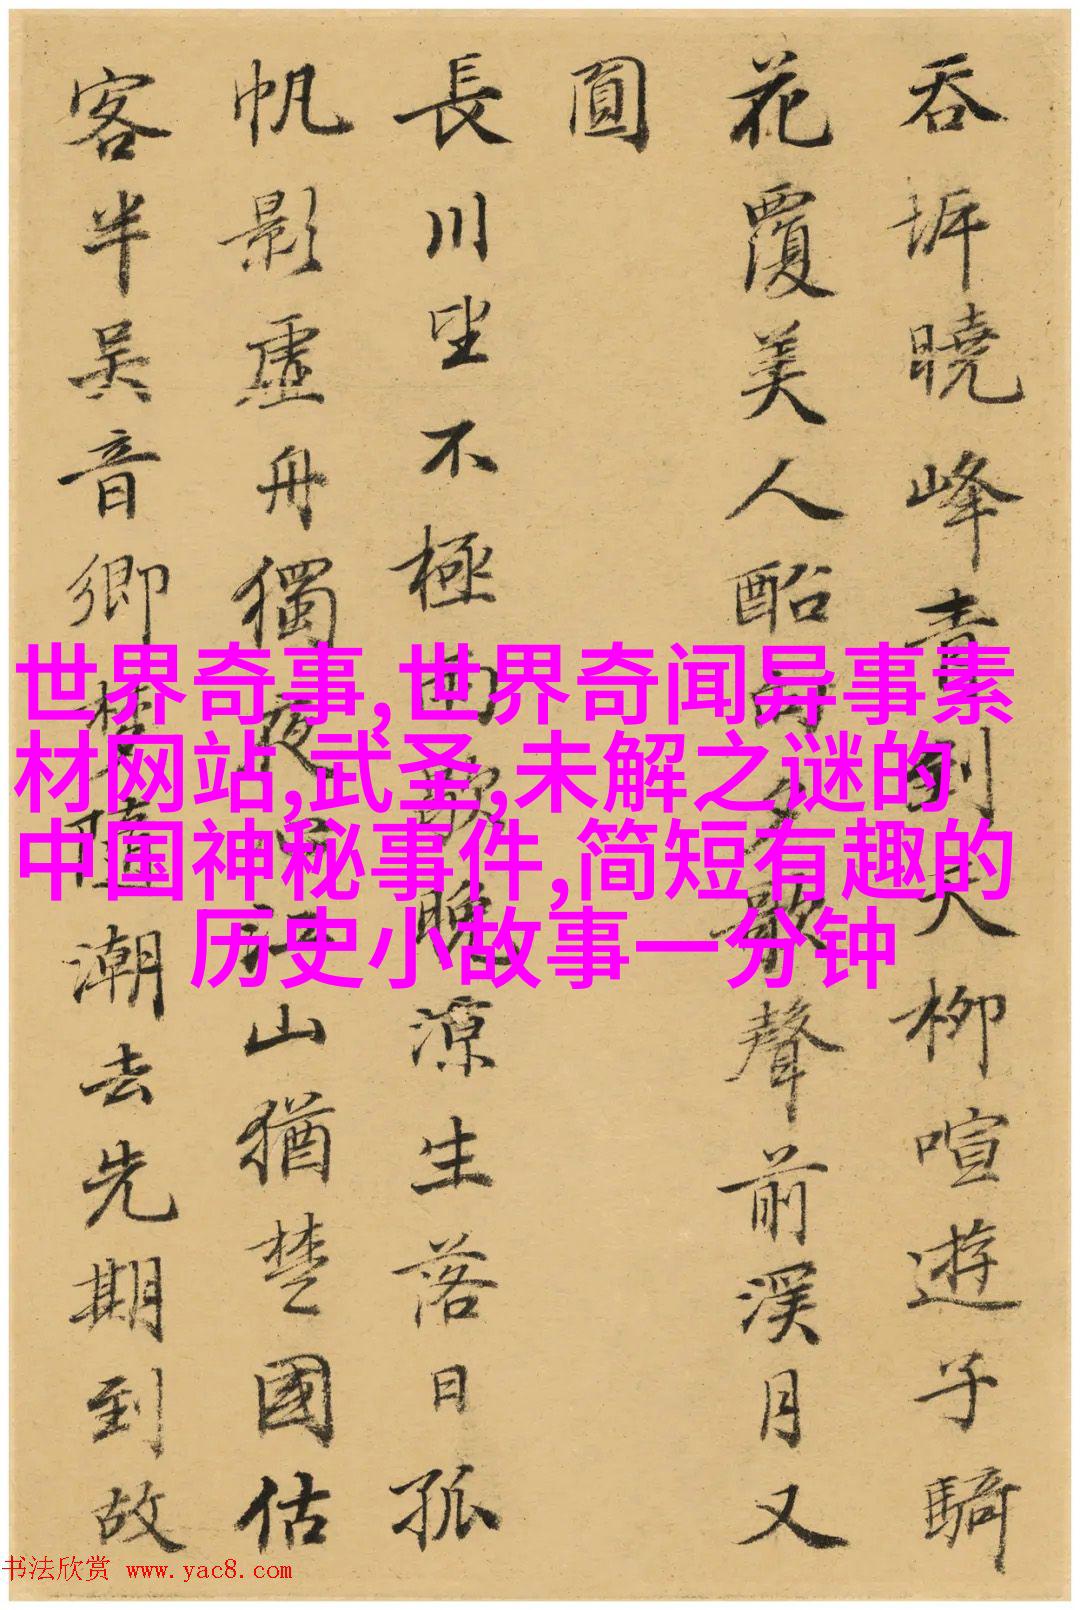 吞坼曉峰青到天柳喧遊子騎
花覆美人船夕歌聲前溪月又
圓
長川望不極歌晚涼生落日孤
帆影虛舟獨夜心江山猶楚國估
客半吳音鄉隨潮去先期到故
世界奇事,世界奇闻异事素
材网站,武圣,未解之谜的
中国神秘事件,简短有趣的
历史小故事一分钟
书法欣赏 www.yac8.com